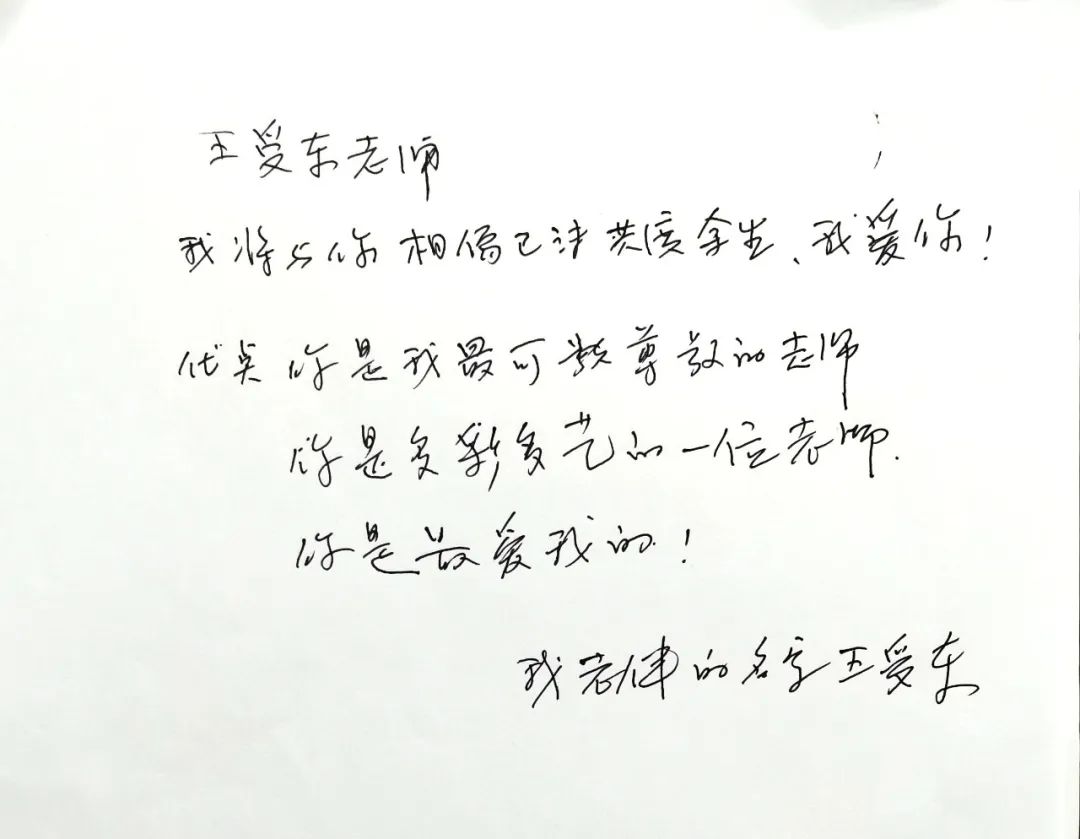 王爱东老师
我将与你相儒已沫共度余生、我爱你!
优点 你是我最可敬尊敬的老师
你是多彩多艺的一位老师.
你是最爱我的!
我老伴的名字王爱东